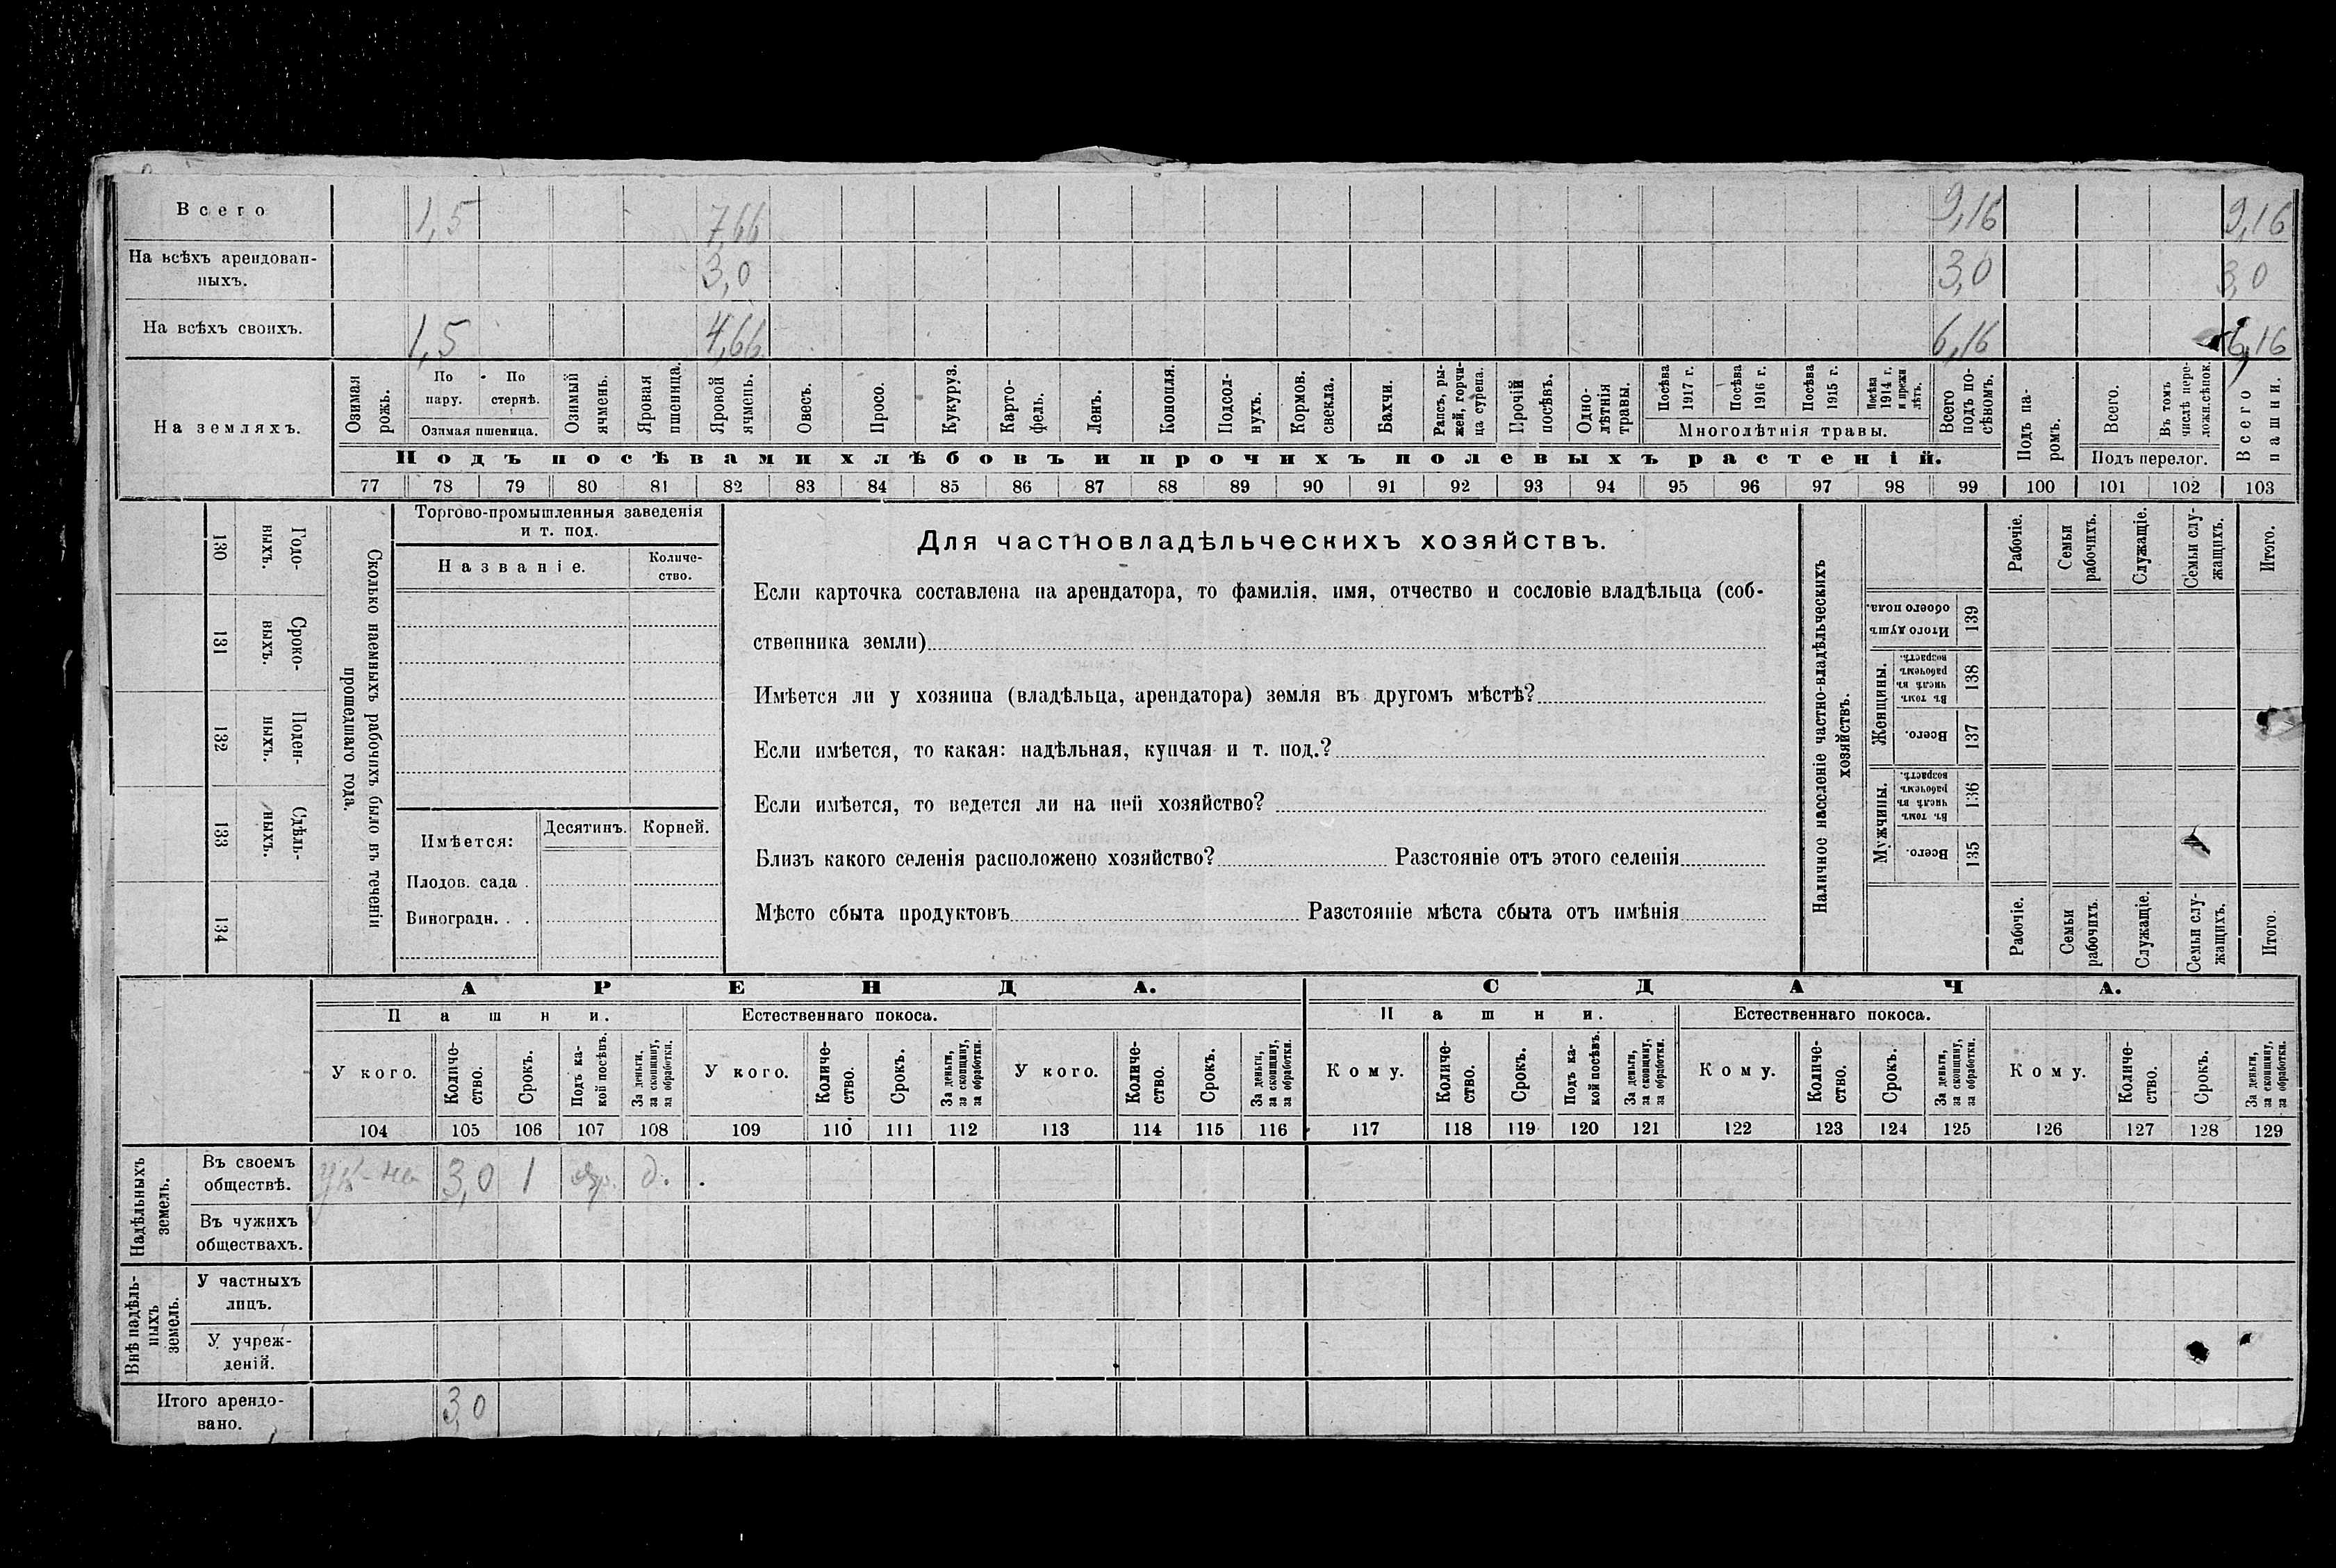 Всего 1,5 7,66 9,16 9,16
На всѣхъ арендован-
ныхъ. 3,0 3,0 3,0
На всѣхъ своихъ. 1,5 4,66 6,16 6,16
На земляхъ.
Озимая рожь.
По пару.
По стернѣ.
Озимая пшеница.
Озимый ячмень.
Яровая пшеница.
Яровой ячмень.
Овесъ.
Просо.
Кукуруз.
Карто-
фель.
Ленъ.
Конопля.
Подсол-
нухъ.
Кормов. свекла.
Бахчи.
Рапсъ, ры-
жей, горчи-
ца сурепа.
Прочій посѣвъ.
Одно-
лѣтнія травы.
Посѣва 1917 г.
Посѣва 1916 г.
Посѣва 1915 г.
Посѣва 1914 г. и прежн лѣтъ.
Многолѣтнія травы.
Всего подъ по-
сѣвомъ.
Подъ па-
ромъ.
Всего.
Въ томъ числѣ пере-
ложн.сѣнок.
Подъ перелог.
Всего пашни.
Подъ посѣвами хлѣбовъ и прочихъ полевыхъ растеній.
77 78 79 80 81 82 83 84 85 86 87 88 89 90 91 92 93 94 95 96 97 98 99 100 101 102 103
Сколько наемныхъ рабочихъ было въ теченіи
прошедшаго года.
Годо-
выхъ.
130
Сроко-
выхъ.
131
Поден-
ныхъ.
132
Сдѣль-
ныхъ.
133
134
Торгово-промышленныя заведенія
и т. под.
Названіе.
Количе-
ство.
Имѣется: Десятинъ. Корней.
Плодов. сада .
Виноградн. . .
Для частновладѣльческихъ хозяйствъ.
Если карточка составлена на арендатора, то фамилія, имя, отчество и сословіе владѣльца (соб-
ственника земли)
Имѣется ли у хозяина (владѣльца, арендатора) земля въ другомъ мѣстѣ?
Если имѣется, то какая: надѣльная, купчая и т. под.?
Если имѣется, то ведется ли на ней хозяйство?
Близъ какого селенія расположено хозяйство? Разстояніе отъ этого селенія
Мѣсто сбыта продуктовъ Разстояніе мѣста сбыта отъ имѣнія
Наличное населеніе частно-владѣльческихъ
хозяйствъ.
Рабочіе.
Семьи рабочихъ.
Служащіе.
Семьи слу-
жащихъ.
Итого.
Итого душъ обоего пола.
139
Женщины.
Въ томъ числѣ въ рабочемъ возрастѣ.
138
Всего.
137
Мужчины.
Въ томъ числѣ въ рабочемъ возрастѣ.
136
Всего.
135
Рабочіе.
Семьи рабочихъ.
Служащіе.
Семьи слу-
жащихъ.
Итого.
АРЕНДА. СДАЧА.
Пашни. Естественнаго покоса. Пашни. Естественнаго покоса.
У кого.
Количе-
ство.
Срокъ.
Подъ ка-
кой посѣвъ.
За деньги, за скопщину, за обработки.
У кого.
Количе-
ство.
Срокъ.
За деньги, за скопщину, за обработки.
У кого.
Количе-
ство.
Срокъ.
За деньги, за скопщину, за обработки.
Кому.
Количе-
ство.
Срокъ.
Подъ ка-
кой посѣвъ.
За деньги, за скопщину, за обработки.
Кому.
Количе-
ство.
Срокъ.
За деньги, за скопщину, за обработки.
Кому.
Количе-
ство.
Срокъ.
За деньги, за скопщину, за обработки.
104 105 106 107 108 109 110 111 112 113 114 115 116 117 118 119 120 121 122 123 124 125 126 127 128 129
Надѣльныхъ
земель.
Въ своемъ
обществѣ. 3,0 1 яр. д.
Въ чужихъ
обществахъ.
Внѣ надѣль-
ныхъ
земель.
У частныхъ
лицъ.
У учреж-
деній.
Итого арендо-
вано. 3,0